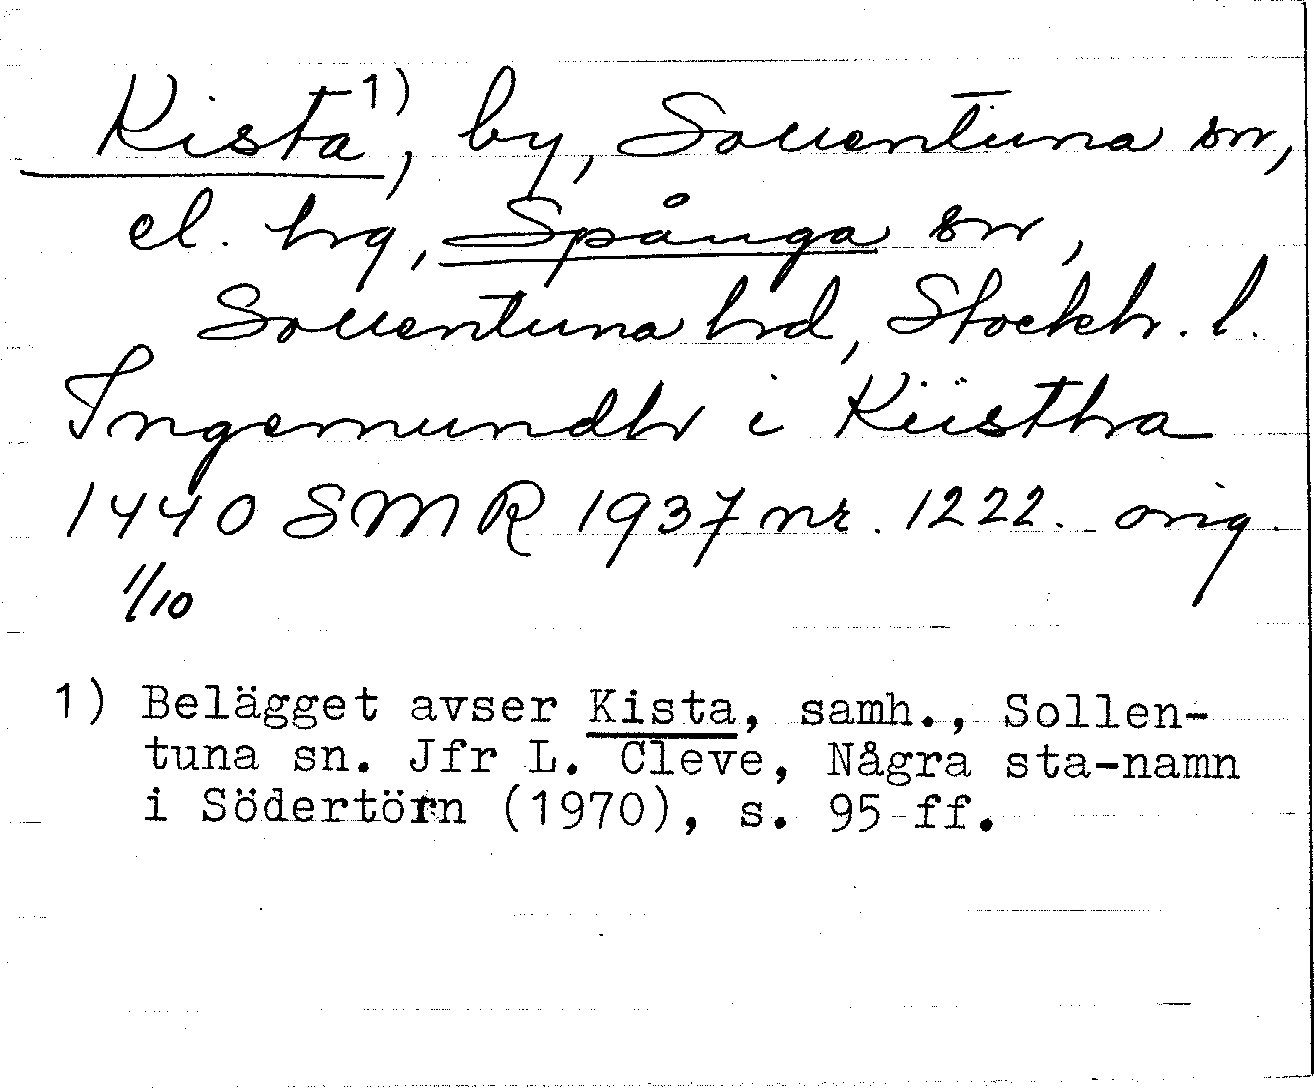 Kista 1), by, Sollentuna sn,
el. hrg, Spånga sn,
Sollentuna hrd, Stockh. l.
Ingemundh i Kiistha
1440 SMR 1937 nr. 1222. orig.
1/10
1) Belägget avser Kista, samh., Sollen-
tuna sn. Jfr L. Cleve, Några sta-namn
i Södertörn (1970), s. 95 ff.